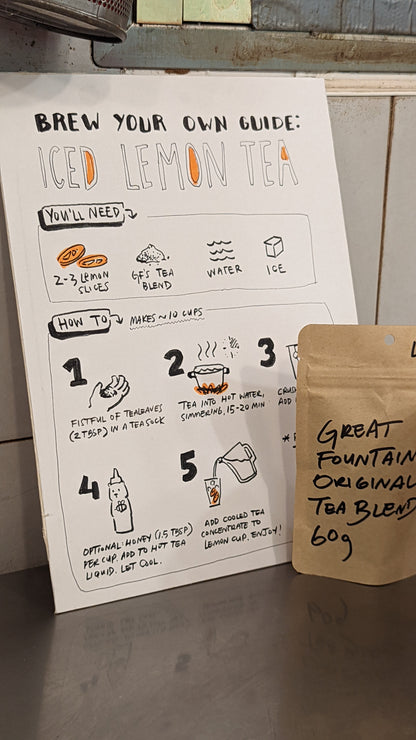 BREW YOUR OWN GUIDE:
ICED LEMON TEA
YOU'LL NEED
2-3 LEMON
SLICES
GF'S TEA
BLEND
WATER
ICE
HOW TO
MAKES ~10 CUPS
1
FISTFUL OF TEALEAVES
(2 TBSP) IN A TEA SOCK
2
TEA INTO HOT WATER,
SIMMERING, 15-20 MIN
3
ADD
4
OPTIONAL: HONEY (1.5 TBSP)
PER CUP. ADD TO HOT TEA
LIQUID. LET COOL.
5
ADD COOLED TEA
CONCENTRATE TO
LEMON CUP. ENJOY!
GREAT
FOUNTAIN
ORIGINAL
TEA BLEND
60g